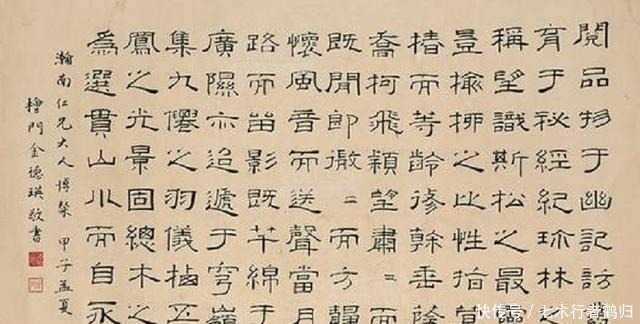 閱品物于幽記訪
育于秘經紀琳林
稱望識斯松之最
豈揄桺之比性指
椿而等齡修幹垂蔭
喬柯飛穎望肅〻
既閒即微〻而方靜
懷風音而送聲當月
路而留影既芊綿于
廣隰亦迢遞于穹嶺
集九僊之羽儀栖五
鳳之光景固總木之
為選貫山川而自永
瀚南仁兄大人博粲 甲子孟夏
檜門金德瑛敬書
快传号／七木行者鹤归